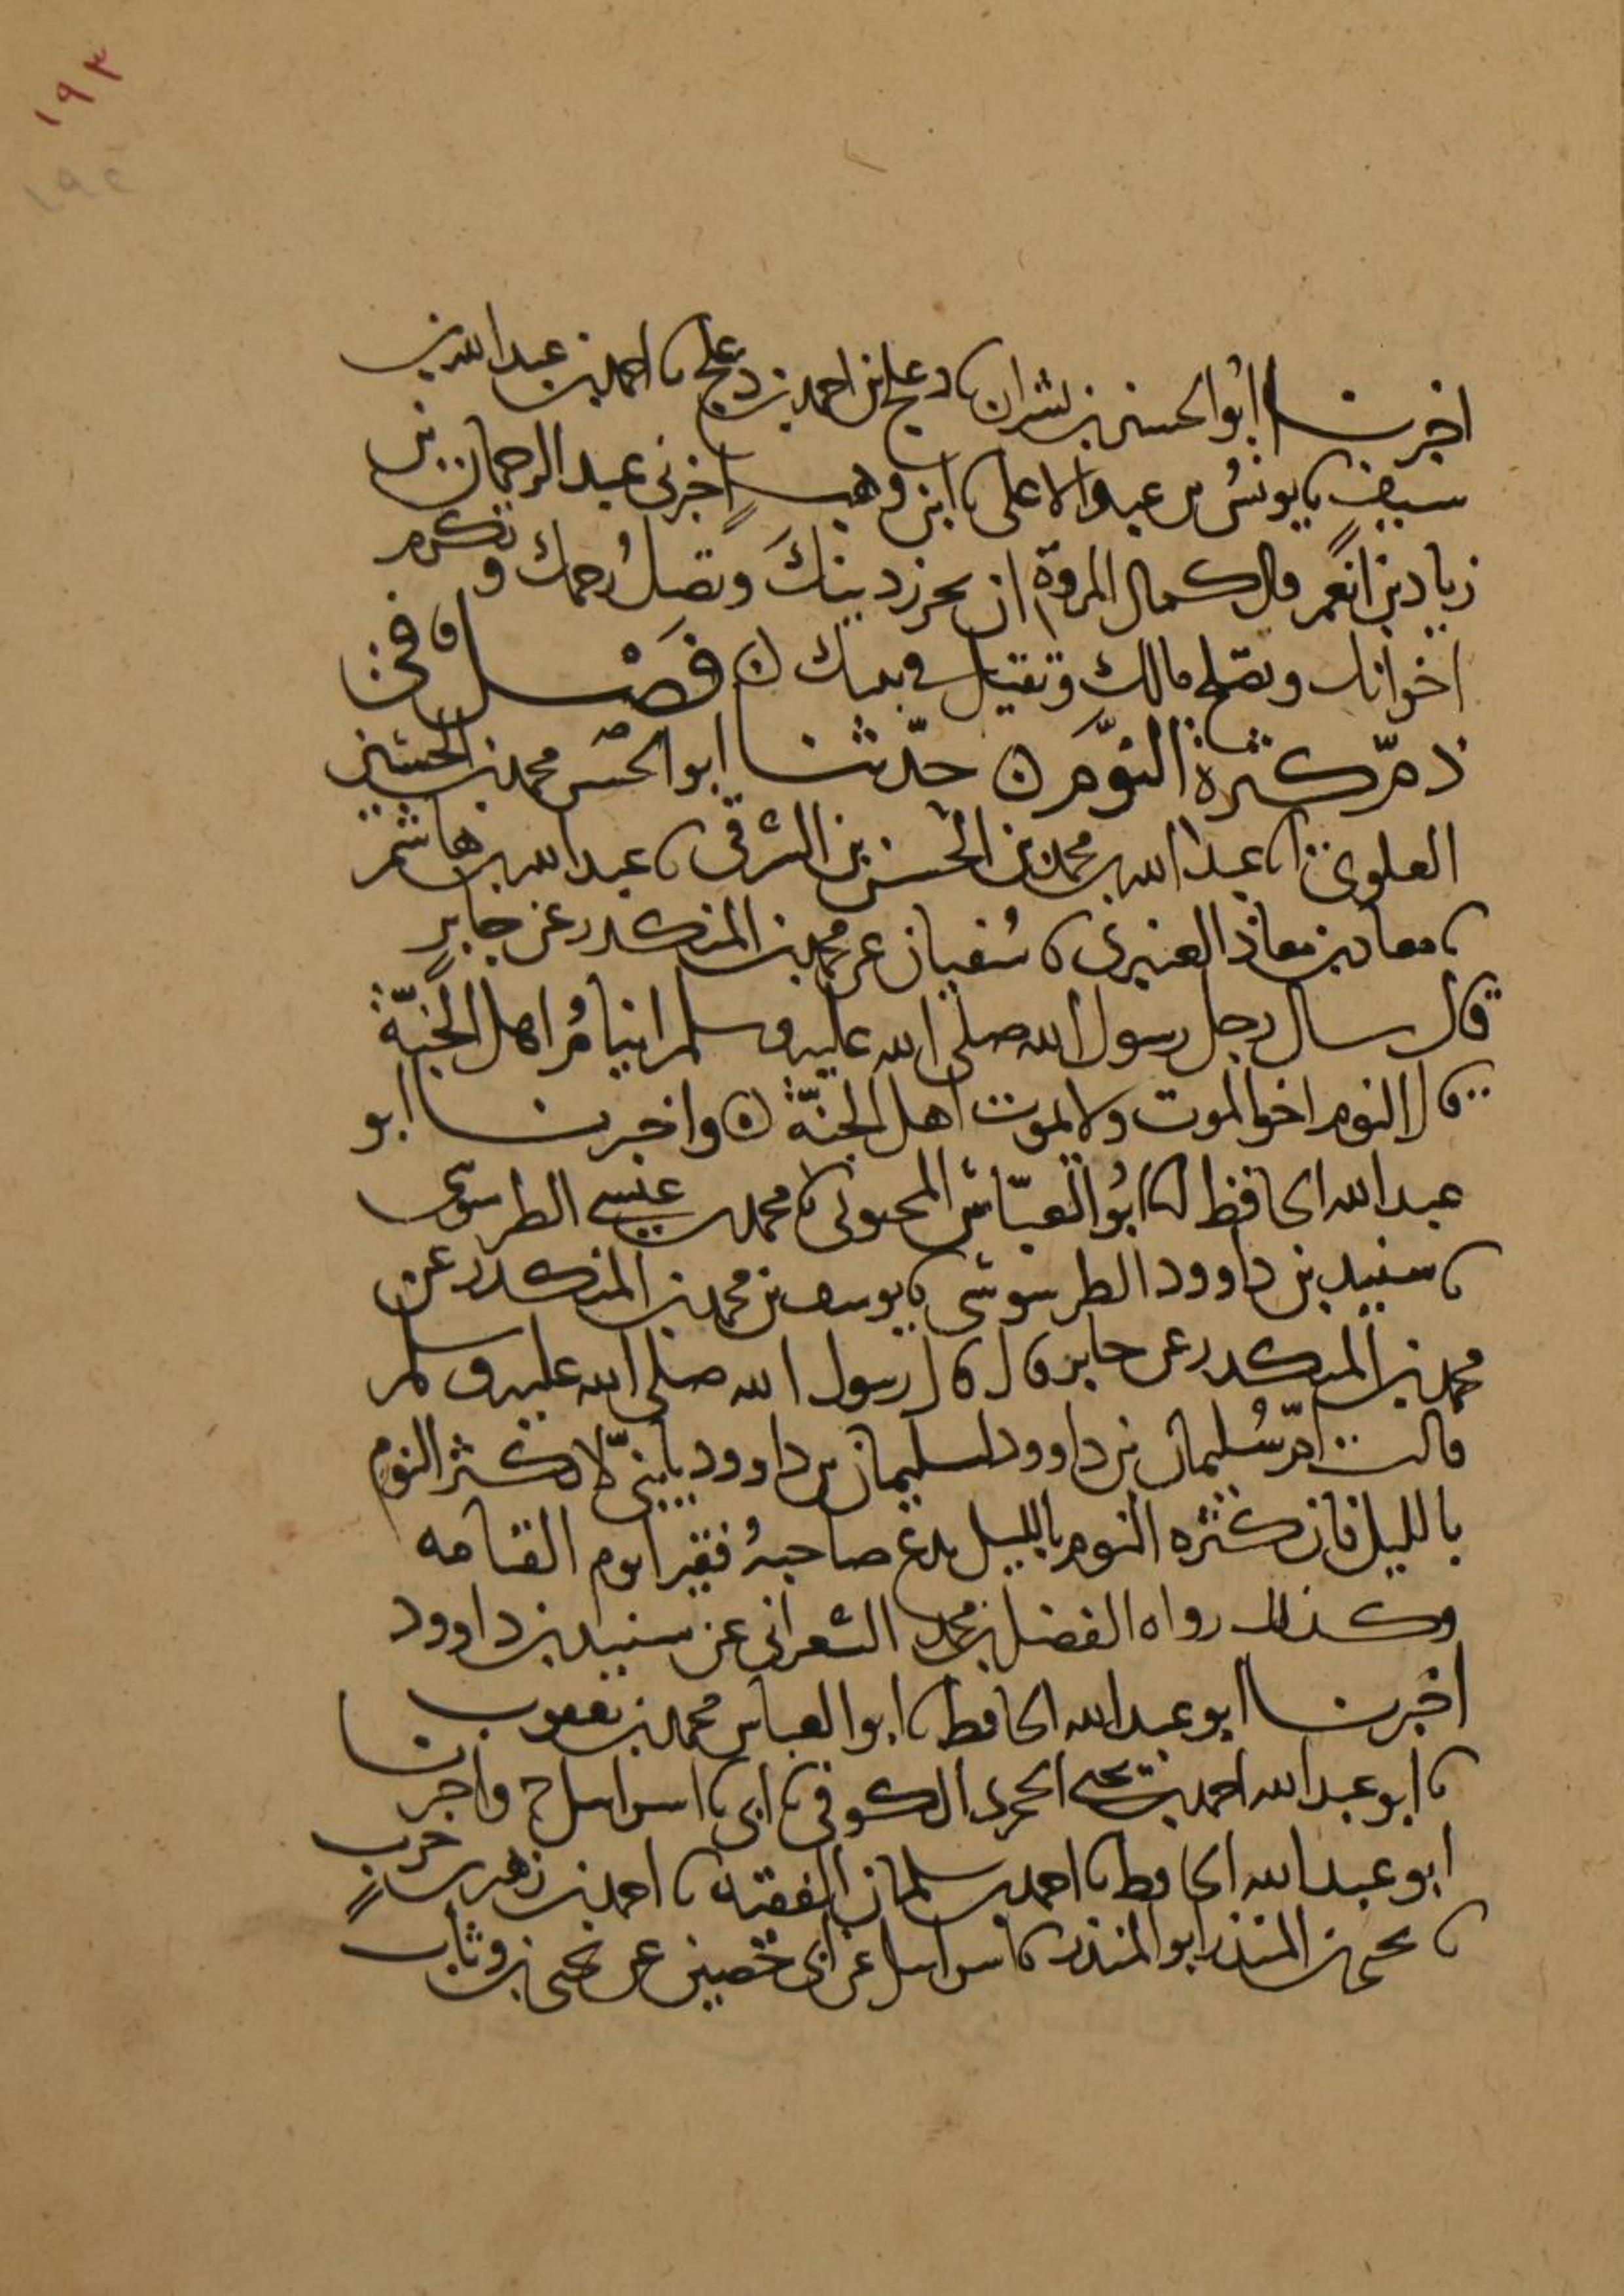 ١٩٣
١٩٤
اخبرنا ابو الحسين بن بشران نا دعلج بن احمد بن دعلج نا احمد بن عبد الله بن
سيف نا يونس بن عبد الاعلى نا ابن وهب اخبرني عبد الرحمان بن
زياد بن انعم قال كمال المروة ان تحرز دينك وتصل رحمك وتكرم
اخوانك وتصلح مالك وتقيل في بيتك ن فصل في
ذم كثرة النوم ن حدثنا ابو الحسن محمد بن الحسين
العلوي انا عبد الله بن محمد بن الحسن بن الشرقي نا عبد الله بن هاشم
نا معاذ بن معاذ العنبري نا سفيان عن محمد بن المنكدر عن جابر
قال سال رجل رسول الله صلى الله عليه وسلم اينام اهل الجنة
قال النوم اخو الموت ولا يموت اهل الجنة ن واخبرنا ابو
عبد الله الحافظ انا ابو العباس المحبوبي نا محمد بن عيسى الطرسوسي
نا سنيد بن داوود الطرسوسي نا يوسف بن محمد بن المنكدر عن
محمد بن المنكدر عن جابر قال قال رسول الله صلى الله عليه وسلم
قالت ام سليمان بن داوود لسليمان بن داوود يا بني لا تكثر النوم
بالليل فان كثره النوم بالليل يدع صاحبه فقيرا يوم القيامه
وكذلك رواه الفضل بن محمد الشعراني عن سنيد بن داوود
اخبرنا ابو عبد الله الحافظ نا ابو العباس محمد بن يعقوب
نا ابو عبد الله احمد بن يحيى الحجري الكوفي نا ابي نا اسرايل ح واخبرنا
ابو عبد الله الحافظ نا احمد بن سلمان الفقيه نا احمد بن زهير بن حرب
نا يحيى بن المنذر ابو المنذر نا اسرايل عن ابي حصين عن يحيى بن وثاب